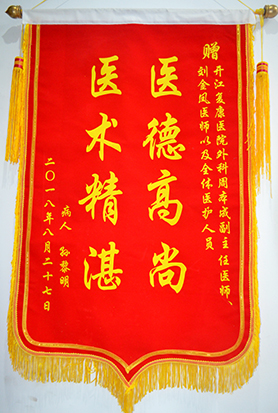 赠 开江复康医院外科周本成副主任医师、
刘金凤医师以及全体医护人员
医德高尚
医术精湛
病人 孙黎明
二〇一八年八月二十七日